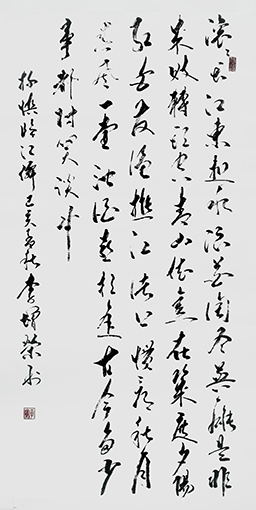 滚滚长江東逝水浪花淘尽英雄是非
成败转头空青山依旧在几度夕陽
红白发渔樵江渚上惯看秋月
春风一壶浊酒喜相逢古今多少
事都付笑谈中
杨慎临江仙己亥秋李